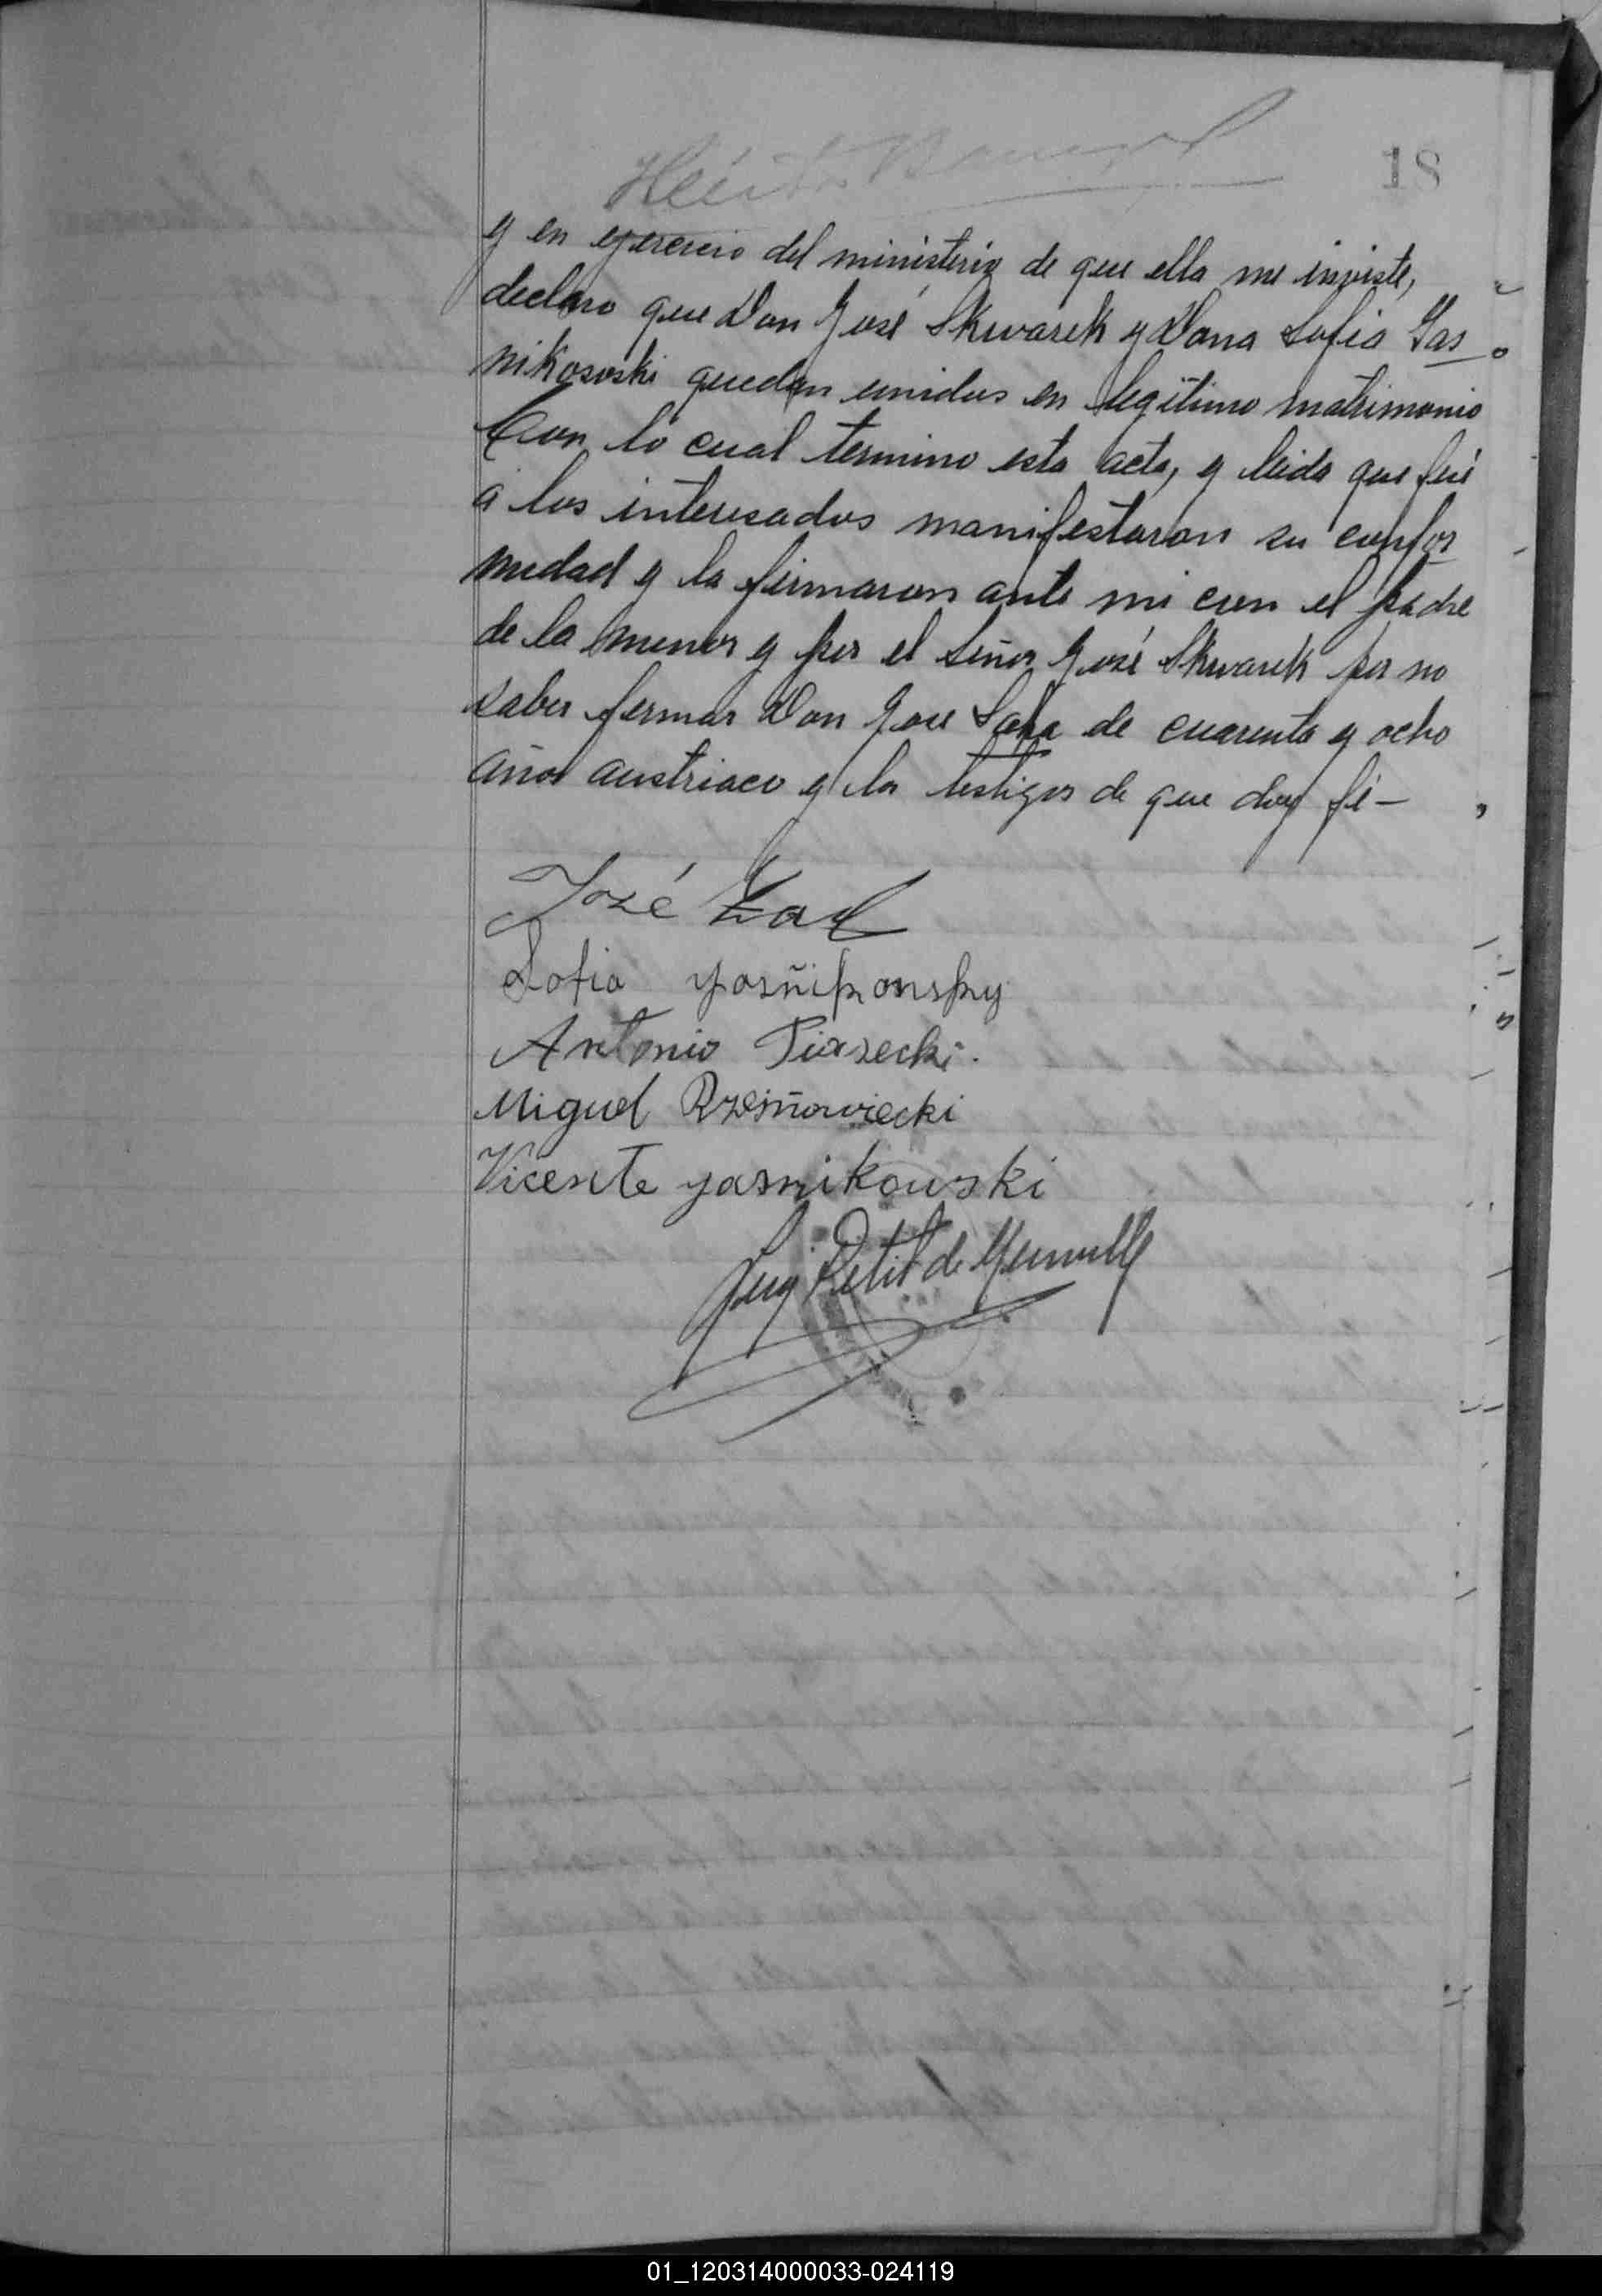 18
y en ejercicio del ministerio de que ella me inviste,
declaro que Don José Skwarek y Dona Sofia Yas
nikososki quedan unidos en legitimo matrimonio
Con lo cual termino esta acta, y leida que fué
á los interesados manifestaron su confor
midad y la firmaron ante mi con el padre
de la menor y por el Señor José Skwarek por no
saber firmar Don Jose de cuarenta y ocho
años austriaco y los testigos de que doy fé-
José
Sofia yasñikonsky
Antonio Piasecki.
Miguel Rzesñowiecki
Vicente yasnikowski
Petit de
01_120314000033-024119